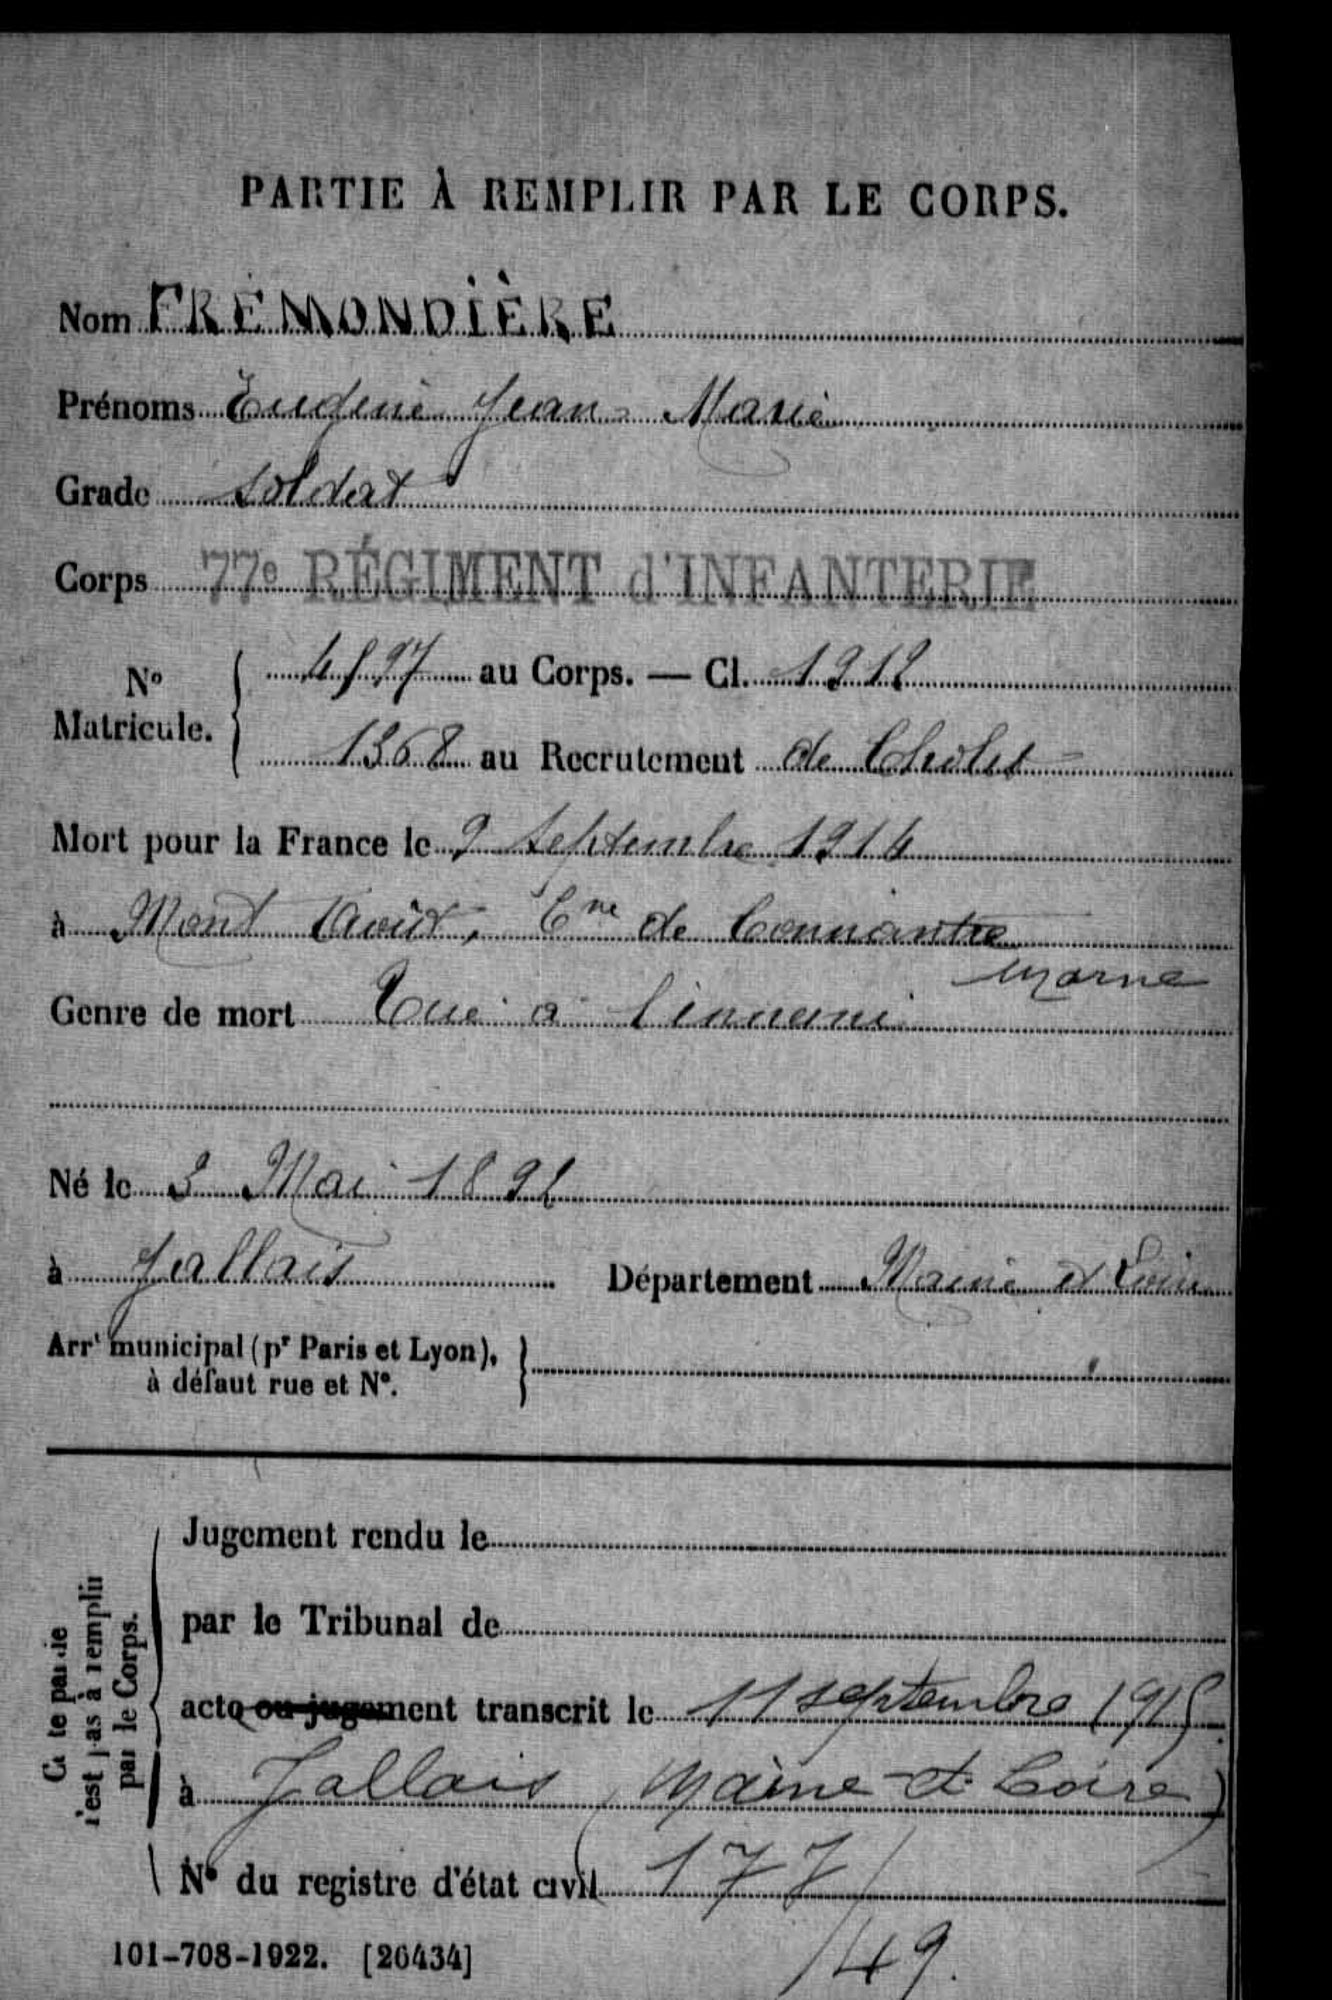 PARTIE À REMPLIR PAR LE CORPS.
Nom FRÉMONDIÈRE
Prénoms Eugène Jean Marie
Grade soldat
Corps 77e RÉGIMENT d'INFANTERIE
No Matricule. 4597 au Corps. — Cl. 1912
1368 au Recrutement de Cholet
Mort pour la France le 9 Septembre 1914
à Mont Août, Cne de Connantre
Marne
Genre de mort Tué à l'ennemi
Né le 3 Mai 1892
à Jallais Département Maine et Loire
Arrt municipal (pr Paris et Lyon),
à défaut rue et No.
Jugement rendu le
par le Tribunal de
acte ou jugement transcrit le 11 septembre 1915
à Jallais (Maine et Loire)
No du registre d'état civil 177/
Cette partie
n'est pas à remplir
par le Corps.
101-708-1922. [26434]
/49.